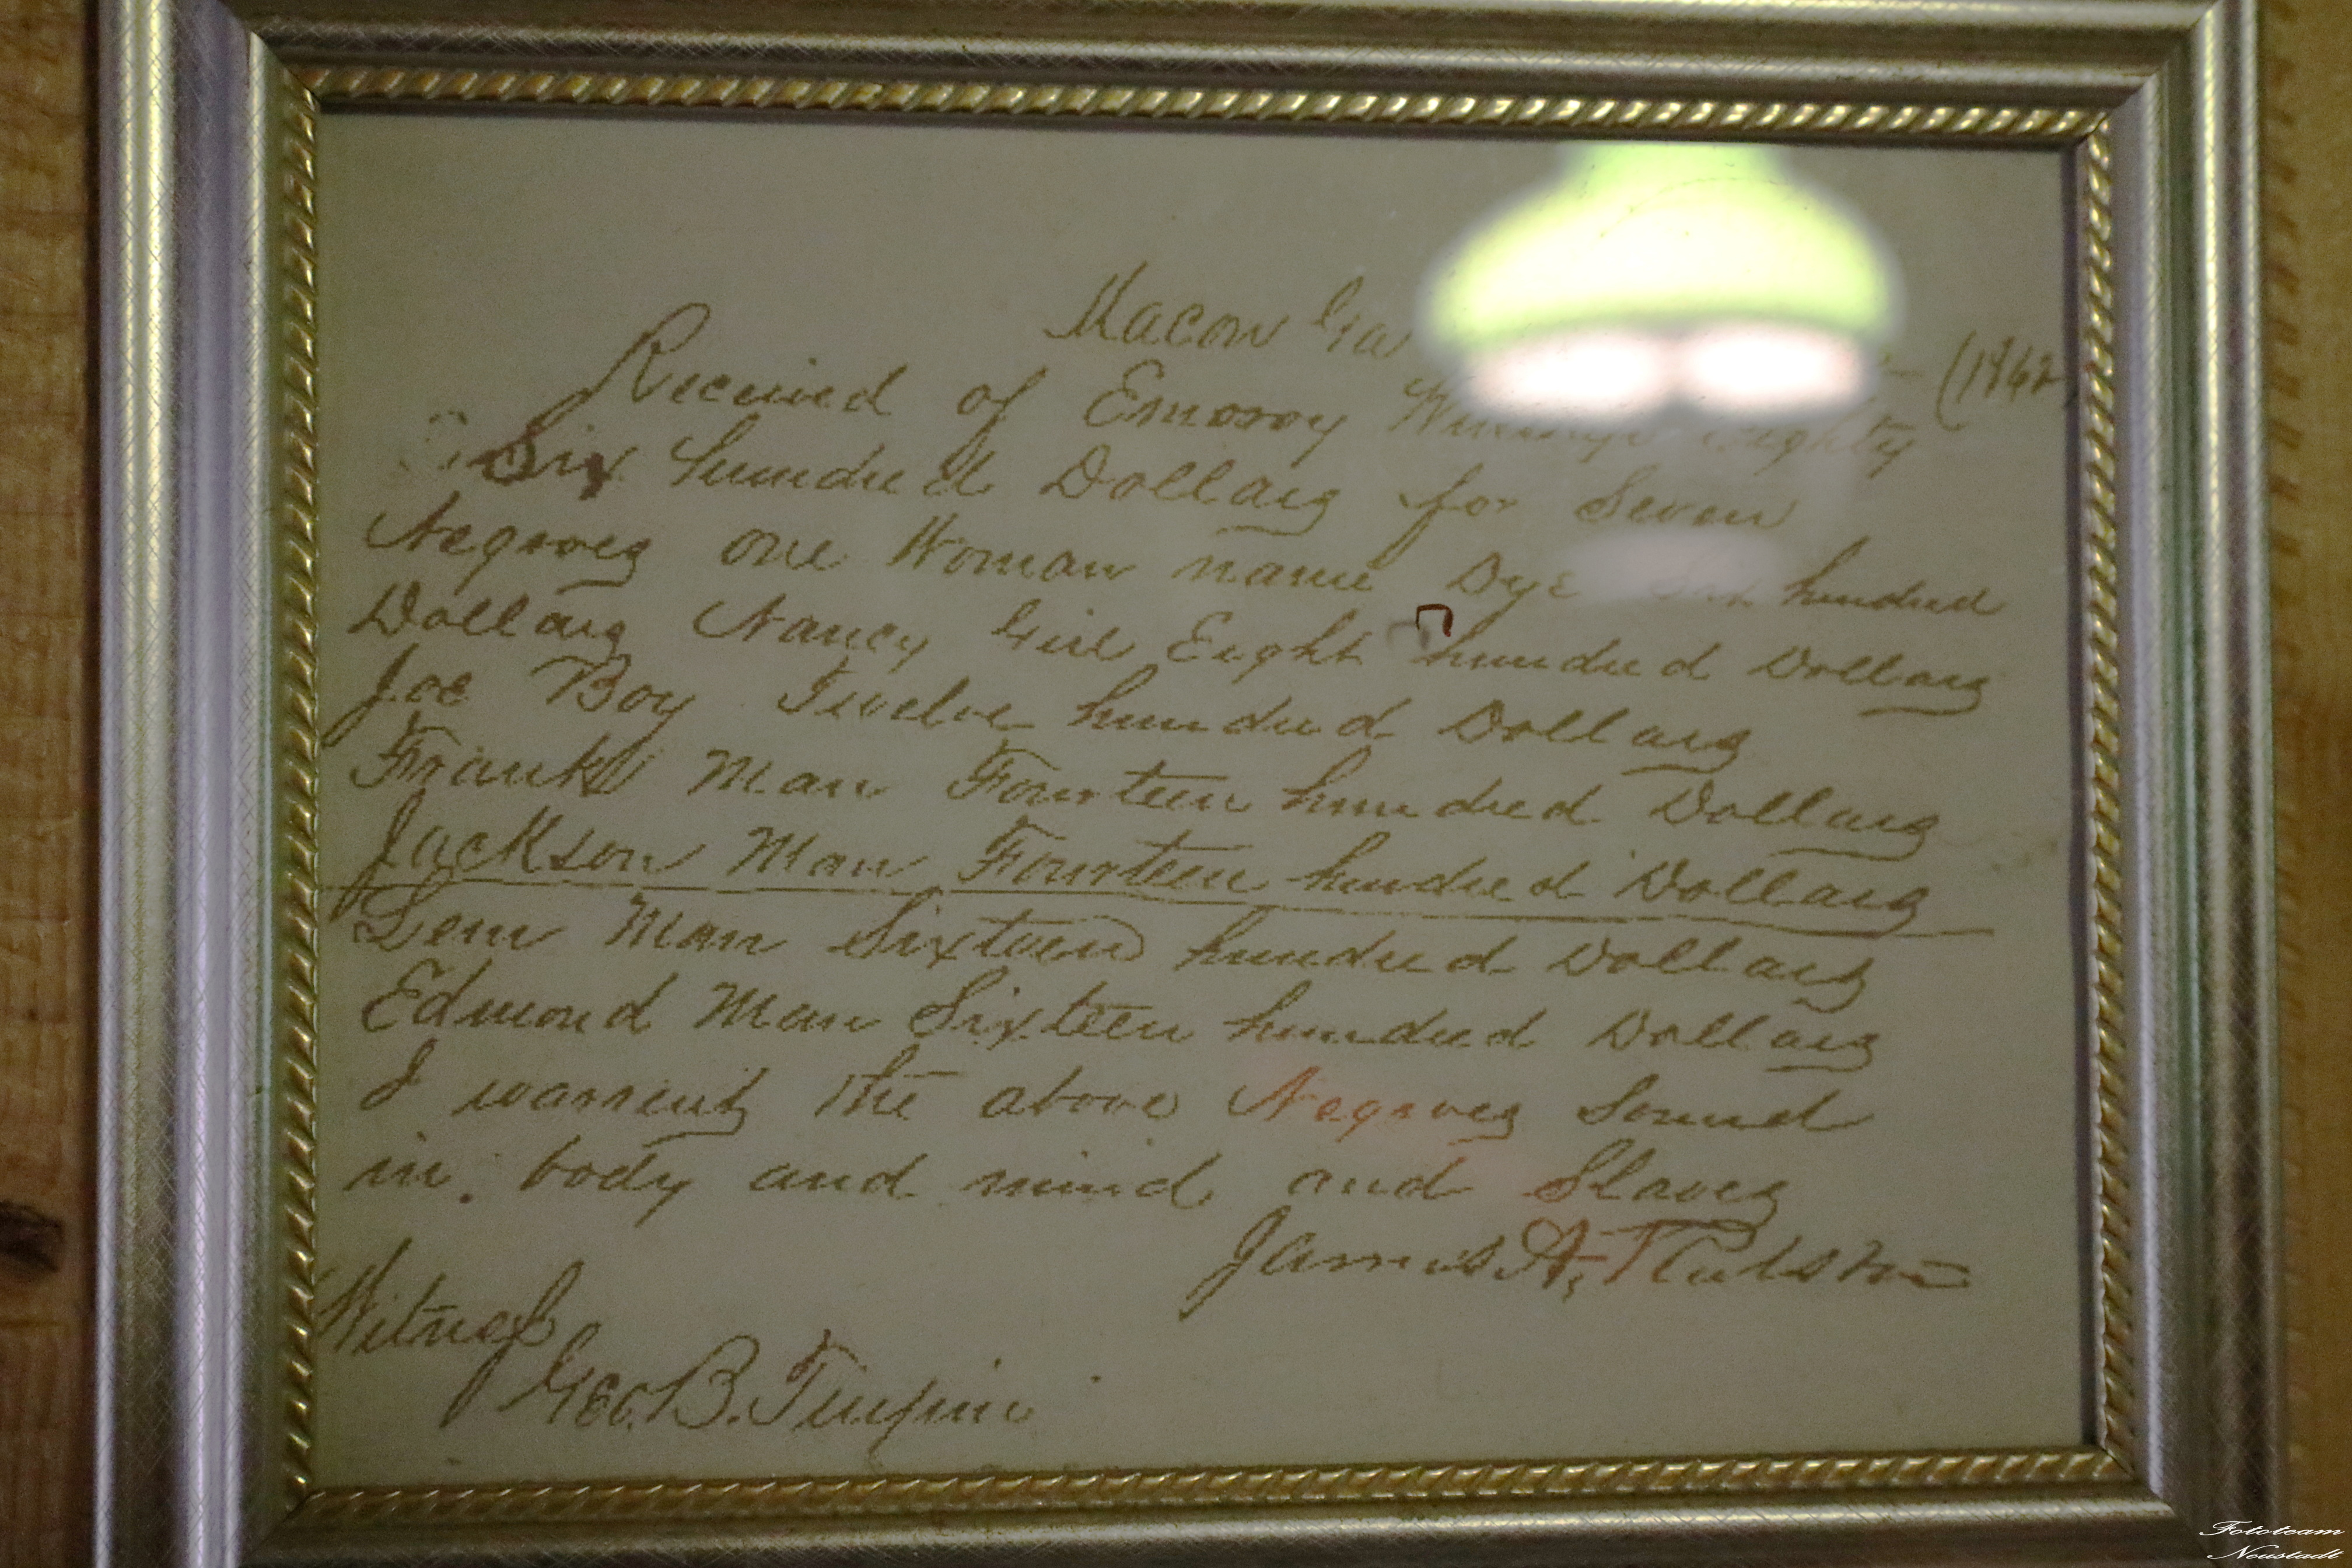 Macon Ga (1862
Received of Emoroy Eighty
Six hundred Dollars for Seven
Negroes one Woman name Dye Six hundred
Dollars Nancy Girl Eight hundred Dollars
Joe Boy Twelve hundred Dollars
Frank Man Fourteen hundred Dollars
Jackson Man Fourteen hundred Dollars
Lem Man Sixteen hundred Dollars
Edmond Man Sixteen hundred Dollars
I warrent the above Negroes Sound
in. body and mind and Slaves
James A.
Witness
Geo. B. Turpin
Fototeam
Neustadt